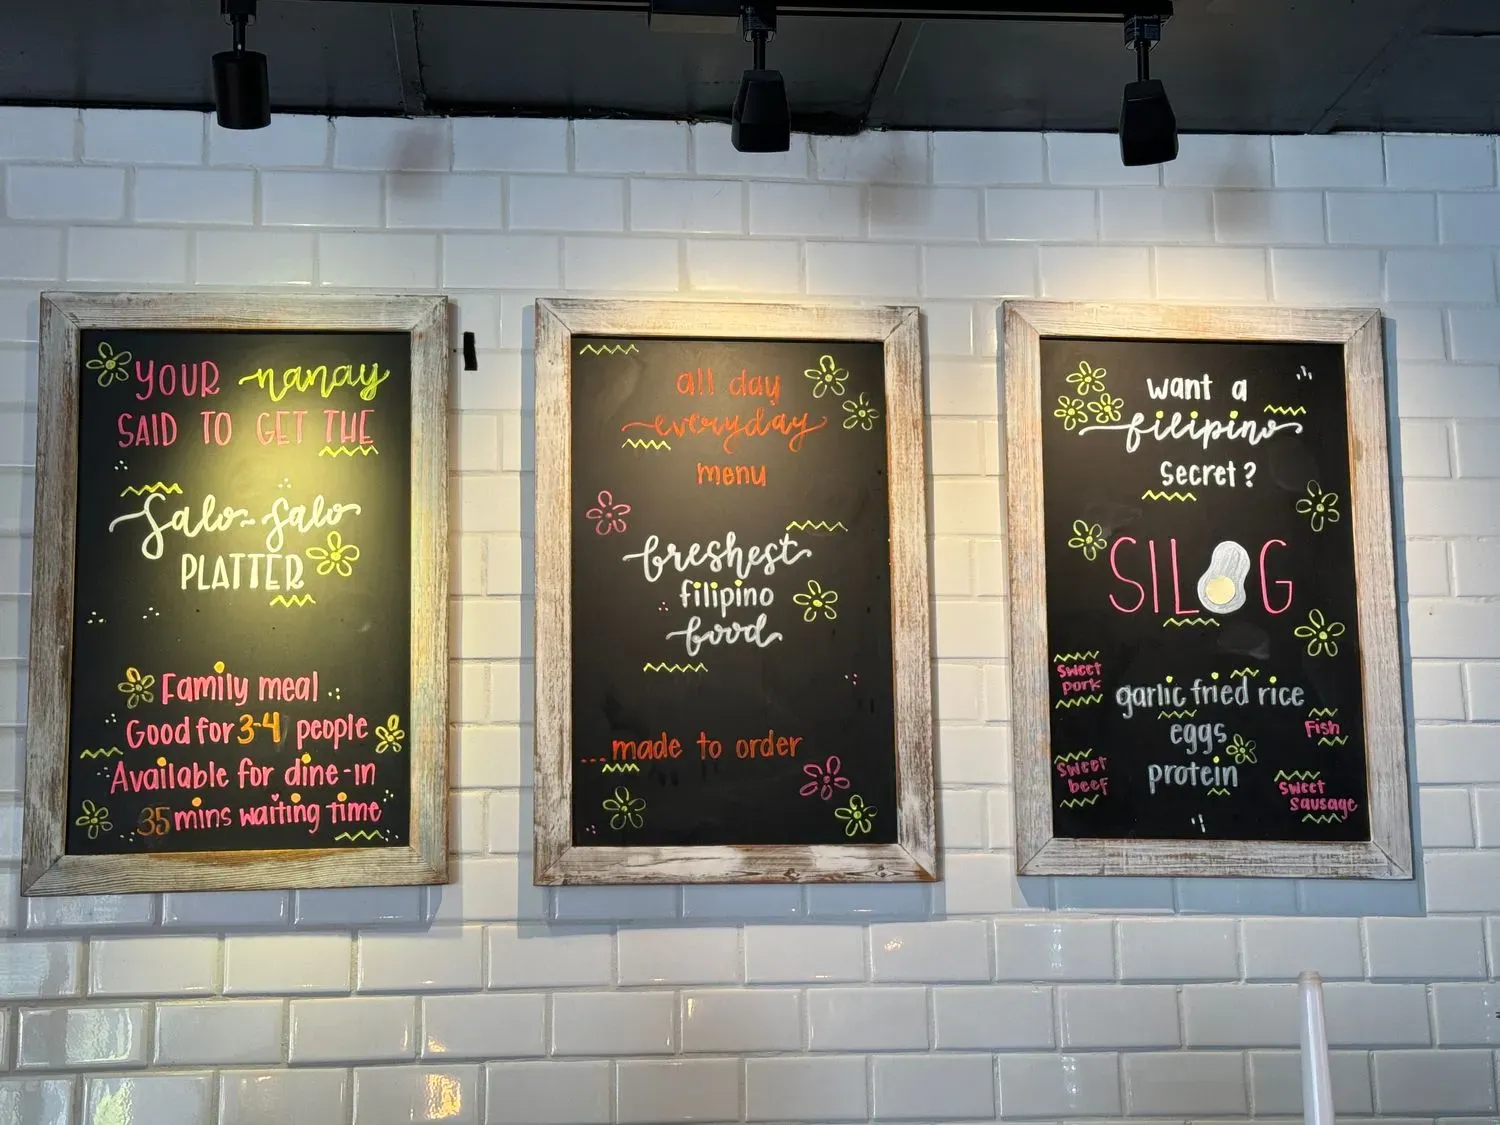 YOUR nanay
SAID TO GET THE
Salo-Salo
PLATTER
Family meal
Good for 3-4 people
Available for dine-in
35 mins waiting time
all day
everyday
menu
freshest
filipino
food
...made to order
want a
filipino
secret?
SILOG
garlic fried rice
eggs
protein
sweet
pork
Fish
sweet
beef
sweet
sausage